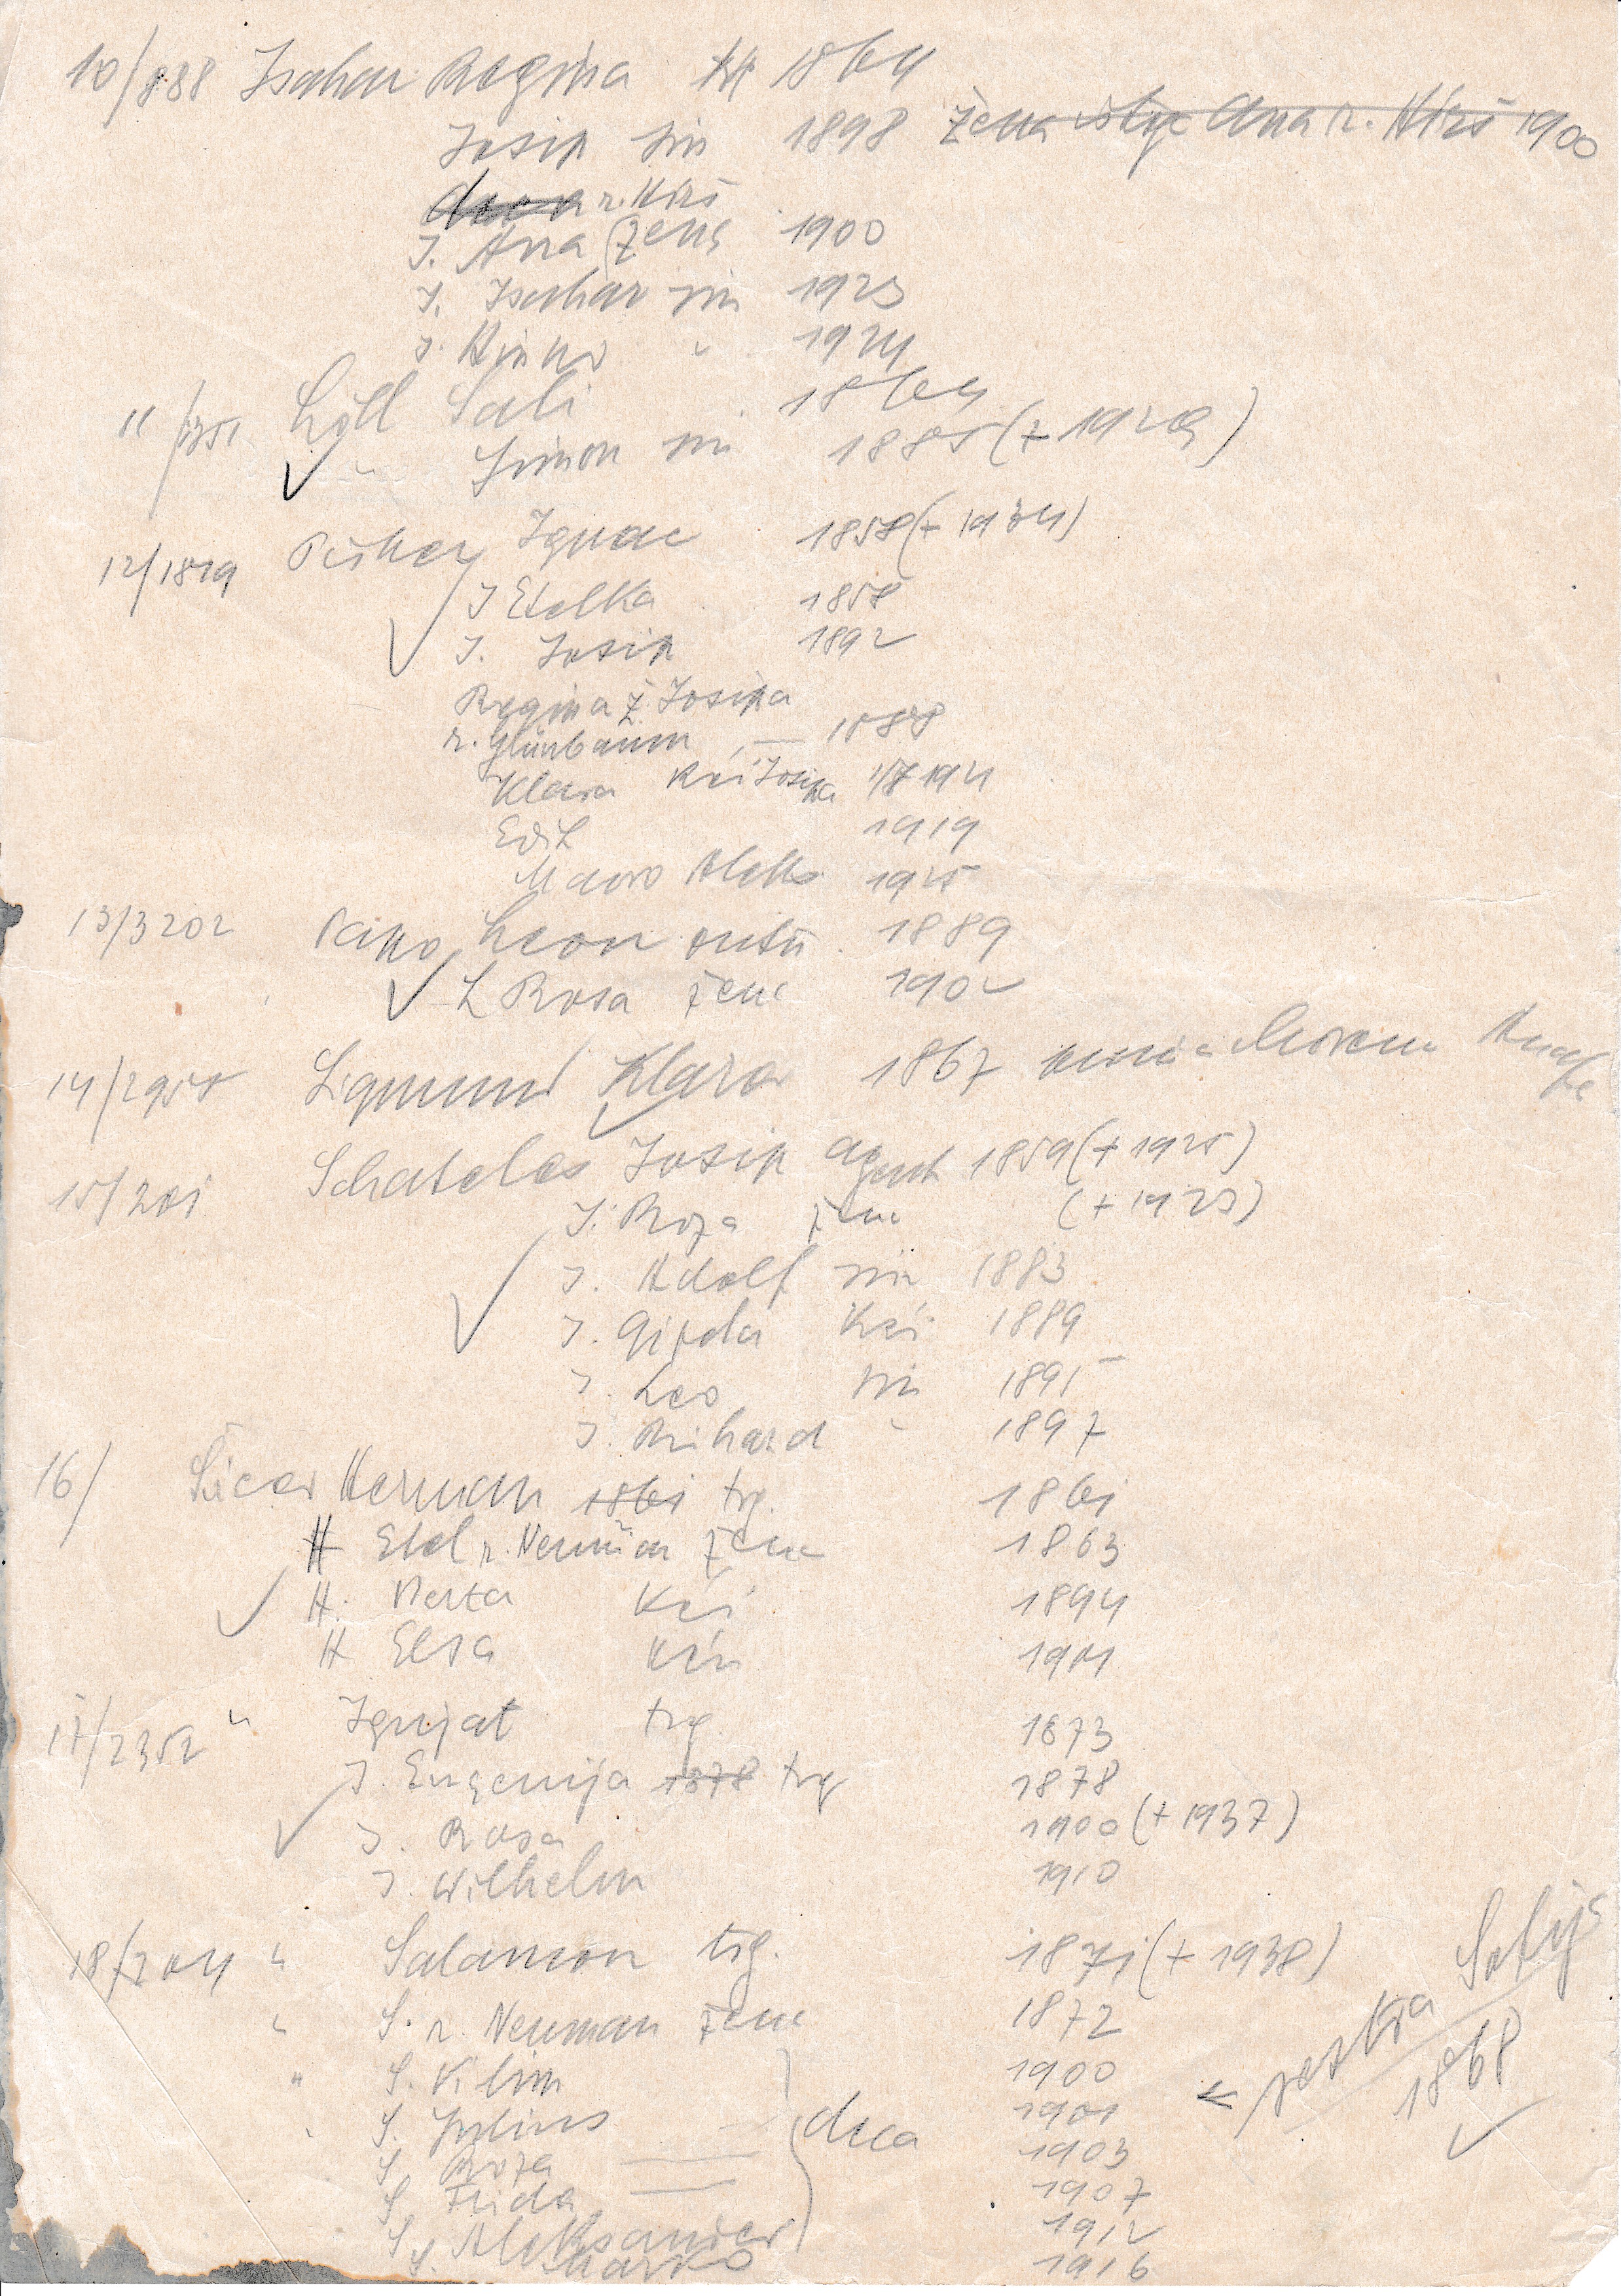 10/888 Isahar Regina 1864
Josip sin 1898 žena Ana r. Hirš 1900
r. Hirš
J. Ana (žena 1900
J. Isahar sin 1923
J. Hinko " 1924
11/1351 Löll Sali 1864
" Simon sin 1885 (+ 1929)
12/1819 Ignac 1858 (+ 1934)
I Etelka 1858
I. Josip 1892
Regina ž. Josipa
r. Grünbaum — 1888
Klara kći Josipa 1914
Edit 1919
Mavro Aleks 1925
13/3202 Papo Leon 1889
L Rosa žena 1902
14/2955 Sigmund Klara 1867
15/201 Schateles Josip agent 1859 (+ 1925)
J. Roza žena (+ 1923)
J. Adolf sin 1883
J. Gizela kći 1889
J. Leo sin 1895
J. Rihard " 1897
16/ Herman 1861 trg. 1861
H Etel r. Neuman žena 1863
H. Berta kći 1894
H Elsa kći 1901
17/2352 " Ignjat trg. 1873
J. Eugenija 1878 trg 1878
J. Rosa 1900 (+ 1937)
J. Wilhelm 1910
18/204 " Salamon trg. 1871 (+ 1938)
" S. r. Neuman žena 1872
" S. Vilim 1900
" S. Julius 1901
S. Roza 1903
S. Frida 1907
S. Aleksander 1912
S. Marko 1916
deca
sestra
1868